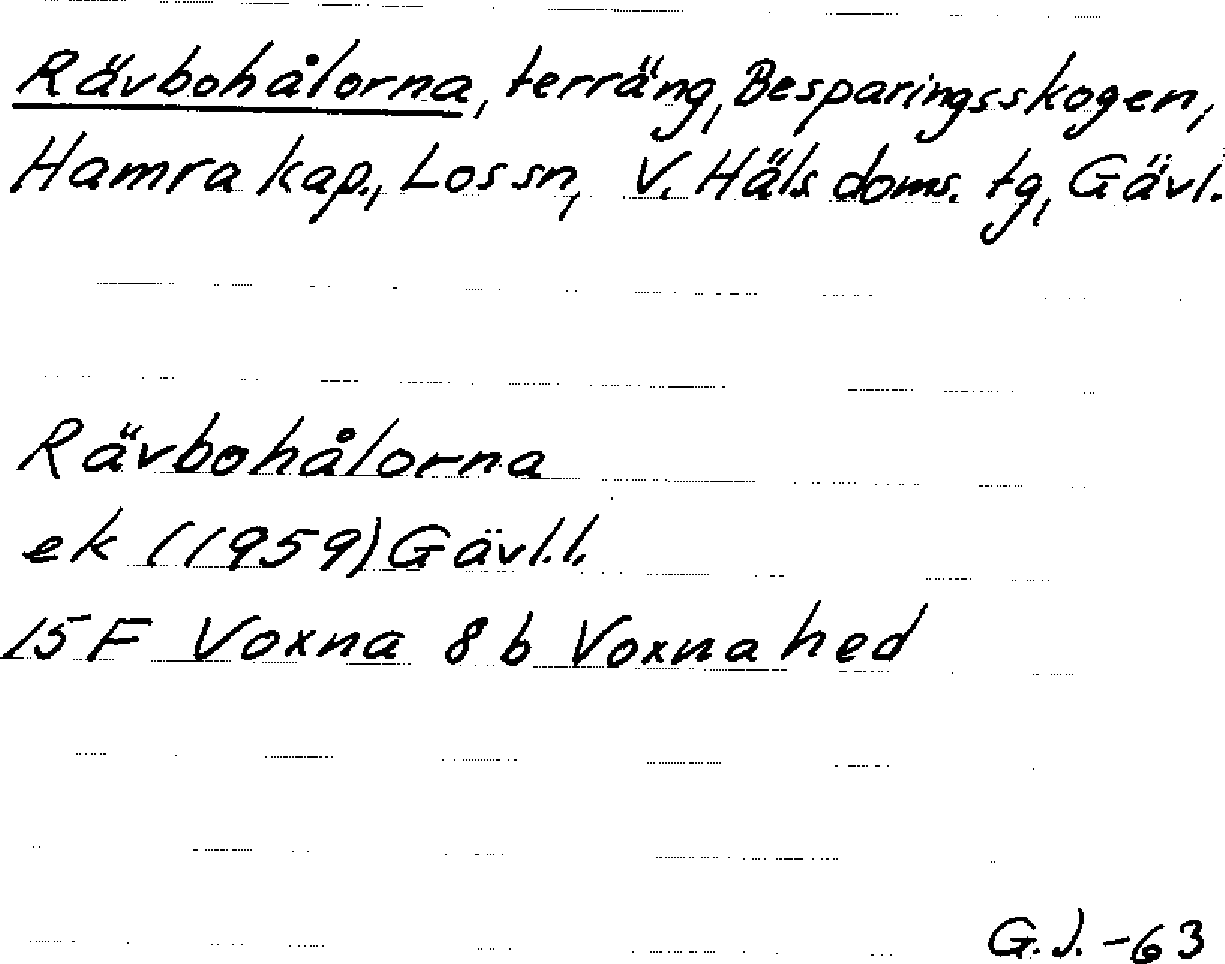 Rävbohålorna, terräng, Besparingsskogen,
Hamra kap., Lossn, V. Häls doms. tg, Gävl.
Rävbohålorna
ek (1959) Gävl.l.
15 F Voxna 8 b Voxnahed
G.J. -63